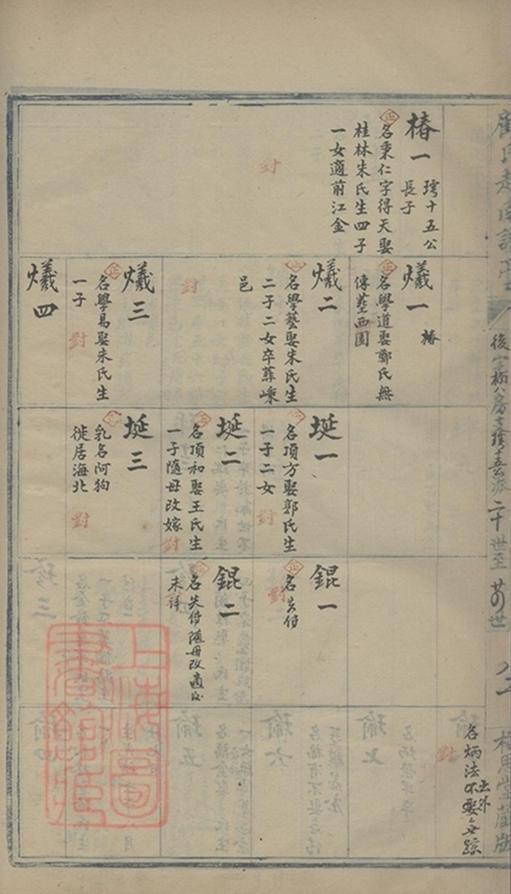 椿一
琇十五公
長子
名秉仁字得天娶
桂林朱氏生四子
一女適前江金
燨一
椿
名學道娶鄭氏無
傳塟西園
燨二
名學藝娶朱氏生
二子二女卒葬嵊
邑
燨三
名學易娶朱氏生
一子
燨四
埏一
名項方娶郭氏生
一子二女
埏二
名項和娶王氏生
一子隨母改嫁
埏三
乳名阿狗
徙居海北
錕一
名失傳
錕二
名失傳隨母改適後
未詳
對
對
對
對
對
對
對
對
二十世至
名炳法出外
不娶無踪
上海圖
書館藏